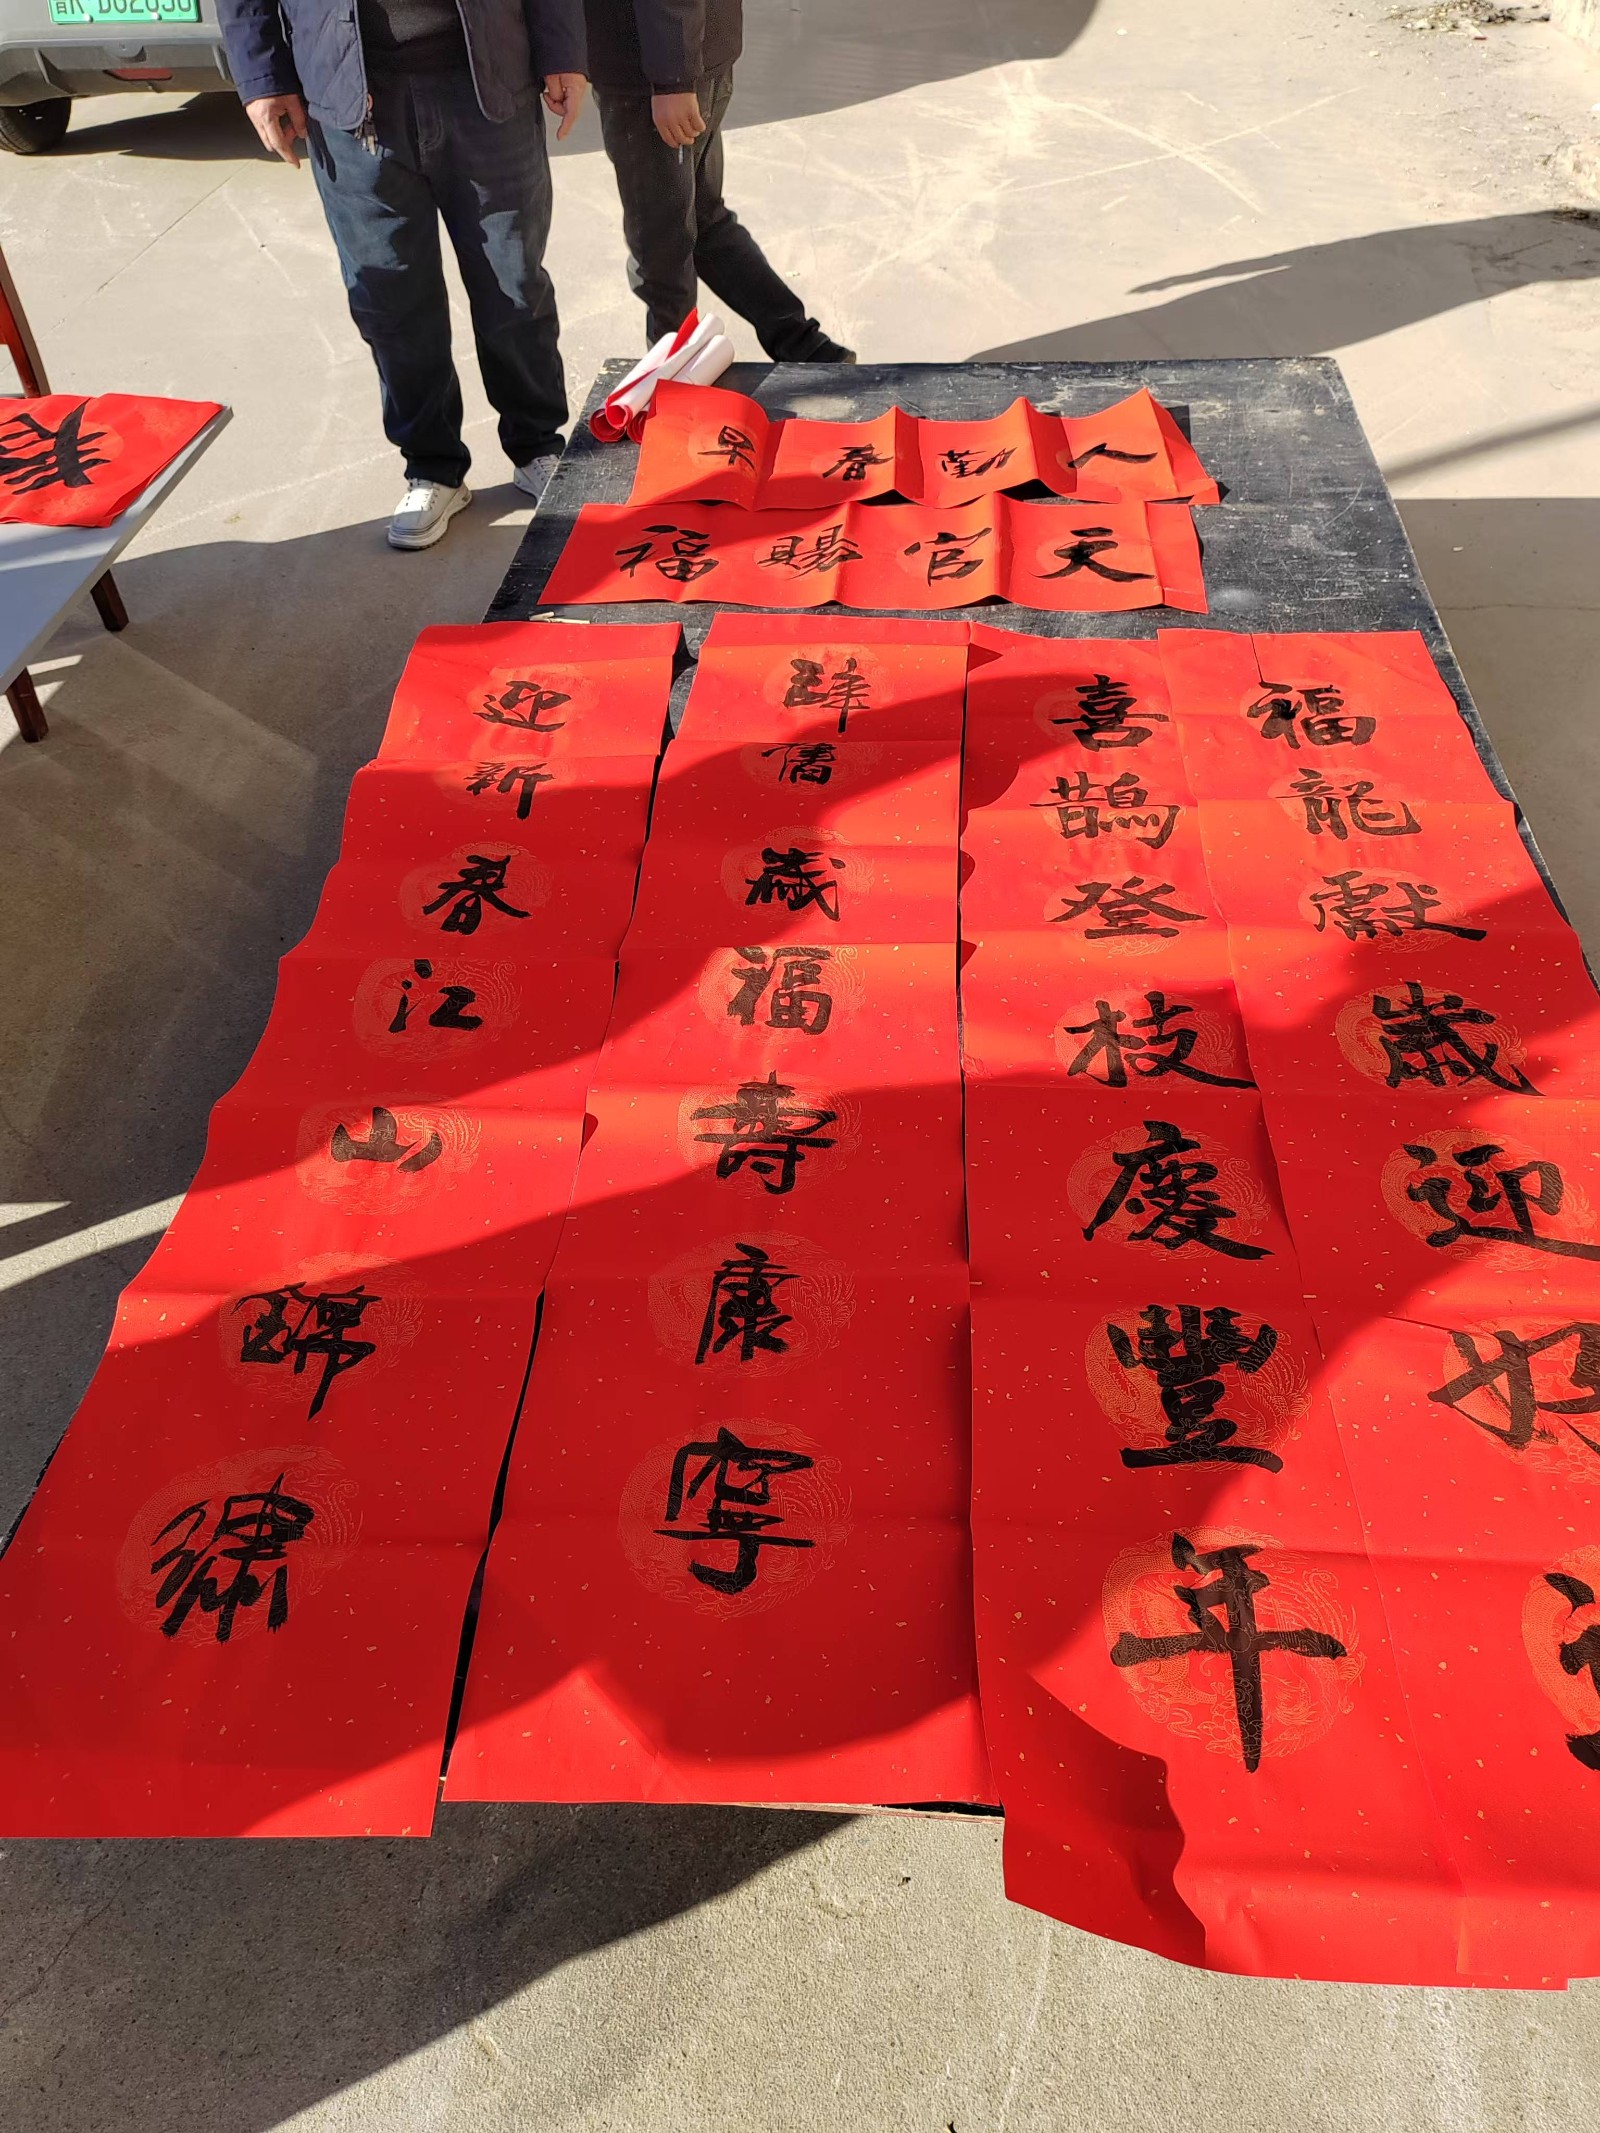 人勤春早
天官賜福
福龍獻歲迎
喜鵲登枝慶豐年
辭舊歲福壽康寧
迎新春江山錦繡
春